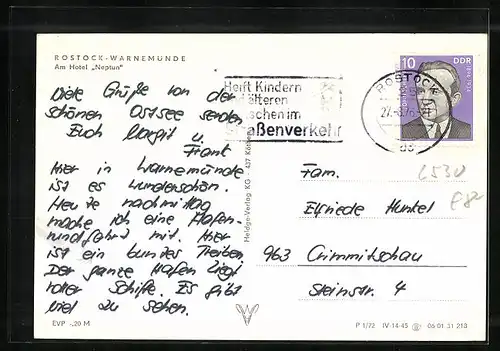 ROSTOCK-WARNEMÜNDE
Am Hotel „Neptun"
Viele Grüße von der
schönen Ostsee senden
Euch Margit u.
Frank
Hier in Warnemünde
ist es wunderschön.
Heute nachmittag
mache ich eine Hafen-
rundfahrt mit. Hier
ist ein buntes Treiben
Der ganze Hafen liegt
voller Schiffe. Es gibt
viel zu sehen.
EVP -,20 M
Helft Kindern
älteren
schen im
Straßenverkehr
ROSTOCK
10
DDR
Heldge-Verlag KG - 437 Köthen
Fam.
Elfriede Hunkel
963 Crimmitschau
Steinstr. 4
L530
P 1/72 IV-14-45 06 01 31 213